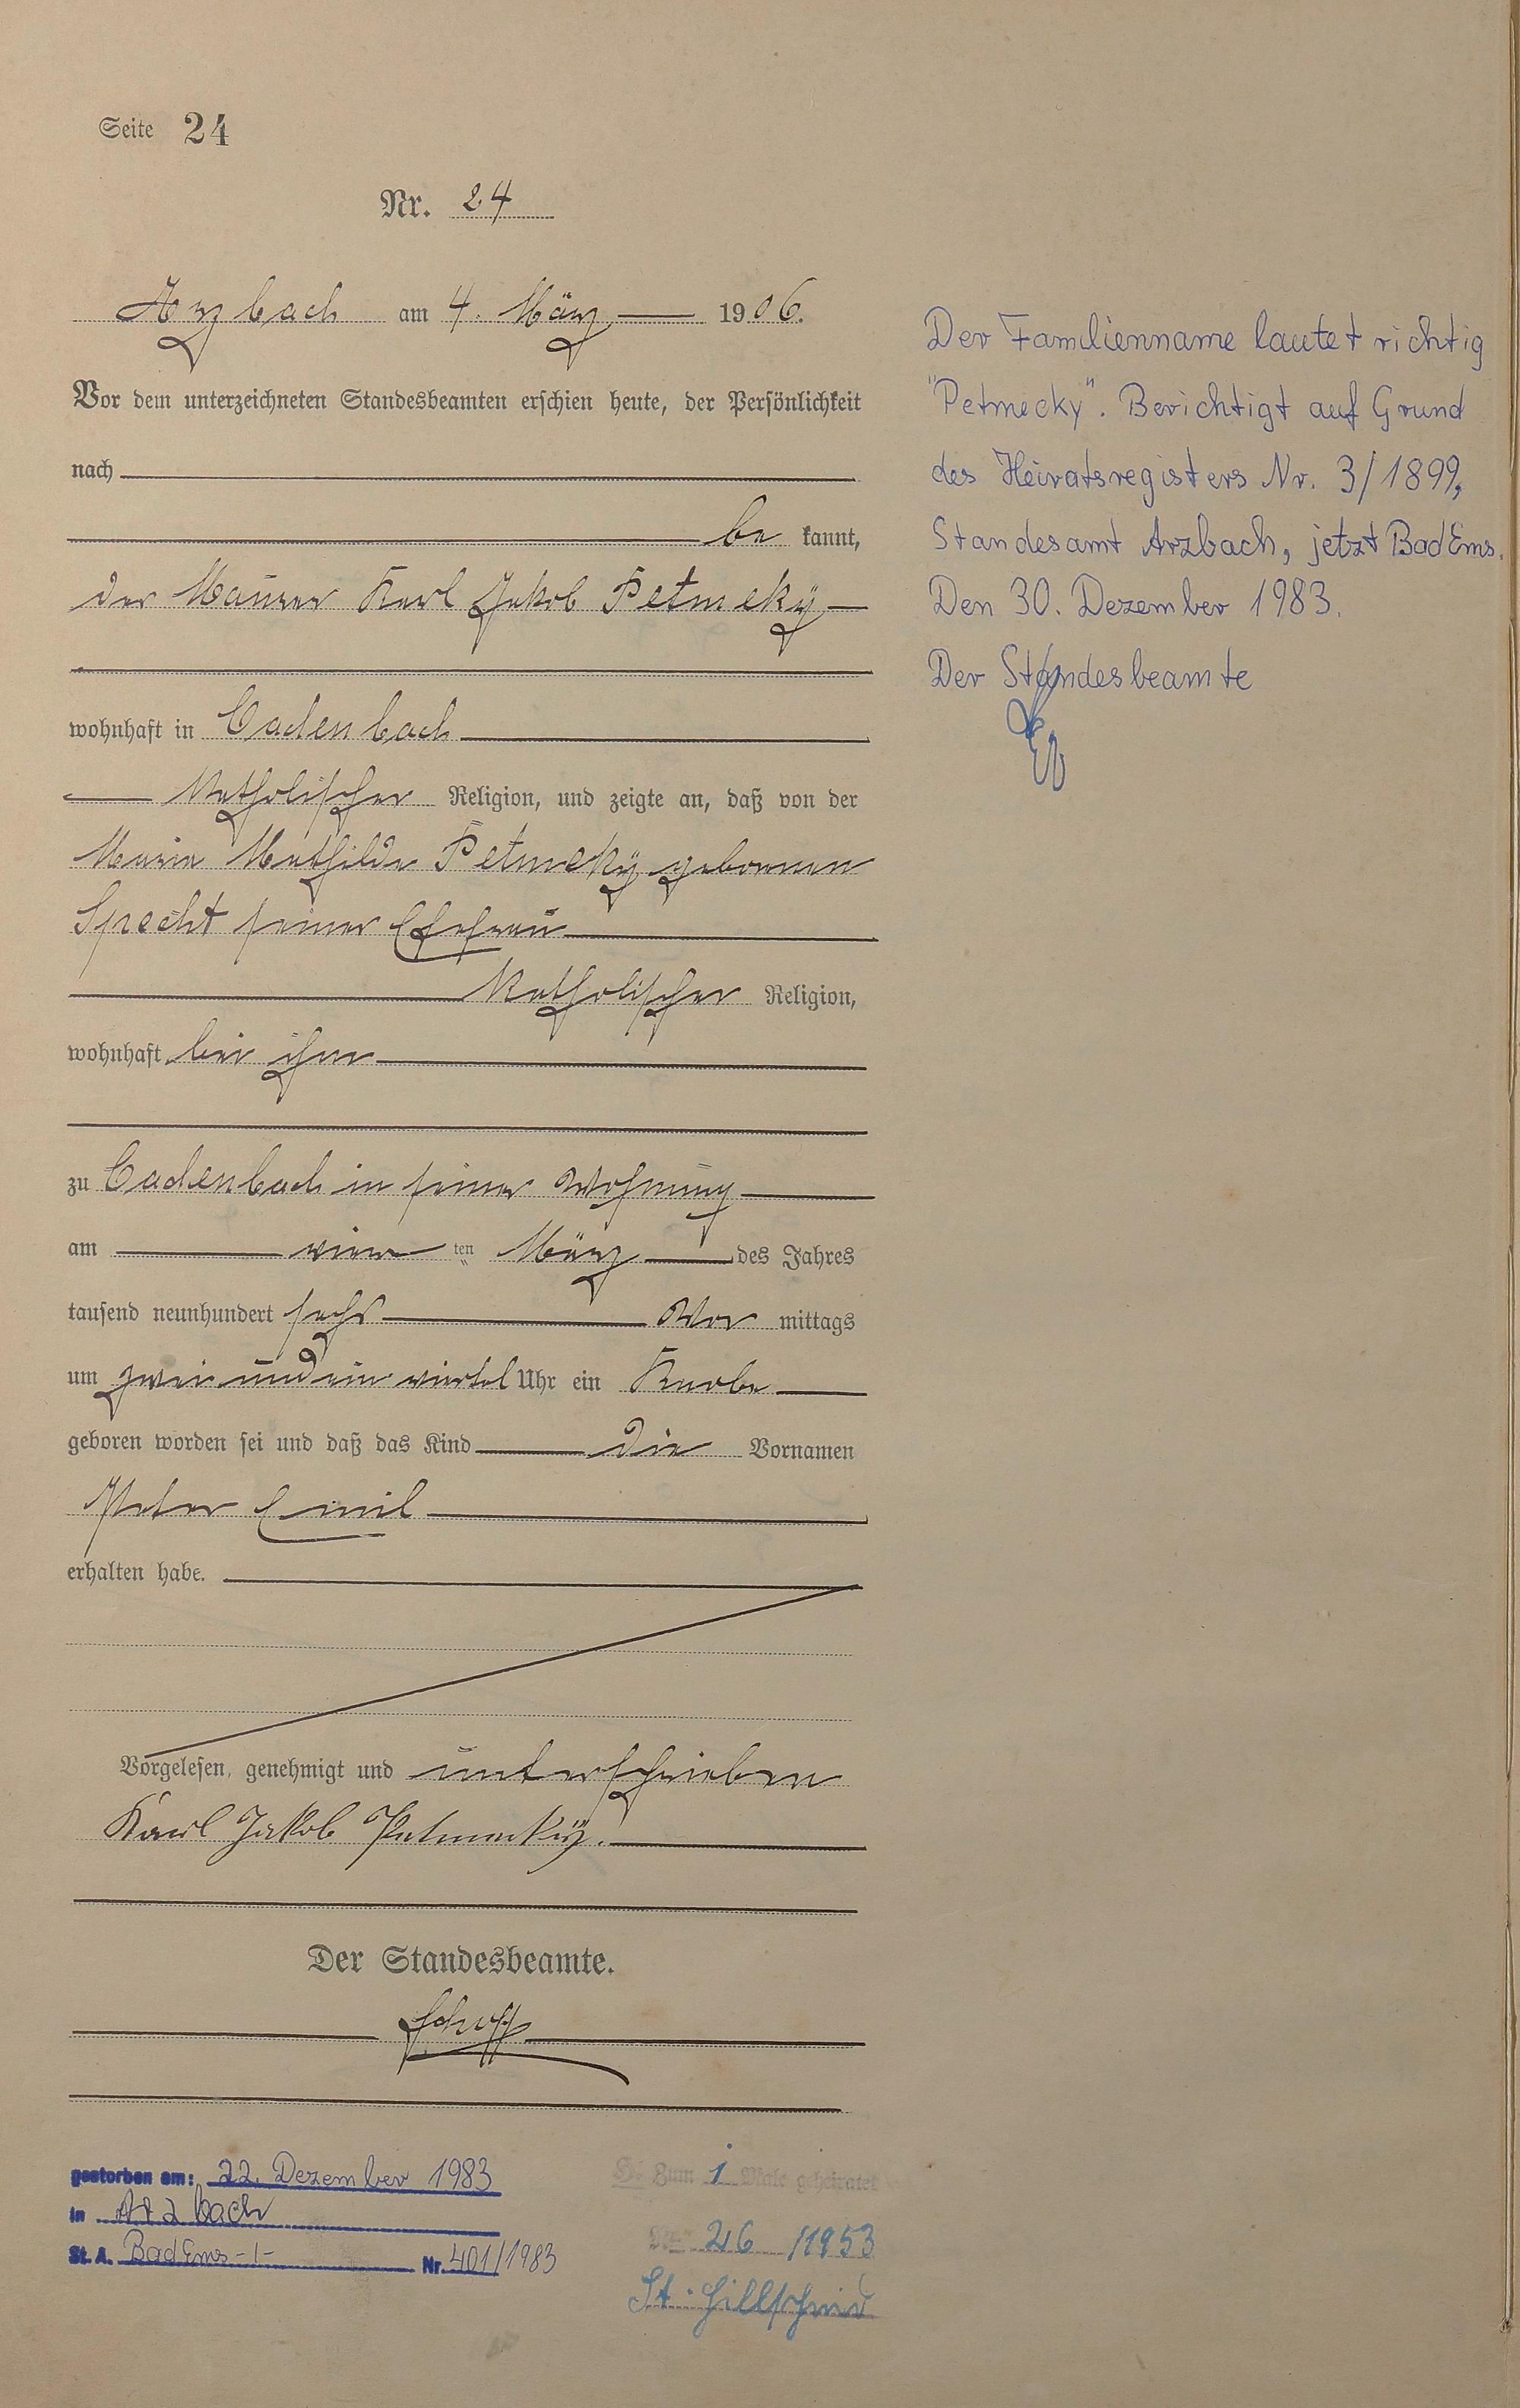 Seite 24
Nr. 24
Arzbach am 4. März 1906.
Vor dem unterzeichneten Standesbeamten erschien heute, der Persönlichkeit
nach
be kannt,
der Maurer Karl Jakob Petmekÿ
wohnhaft in Cadenbach
katholischer Religion, und zeigte an, daß von der
Maria Mathilde Petmekÿ geborenen
Specht seiner Ehefrau
katholischer Religion,
wohnhaft bei ihm
zu Cadenbach in seiner Wohnung
am vier ten März des Jahres
tausend neunhundert sechs Vor mittags
um zwei und ein viertel Uhr ein Knabe
geboren worden sei und daß das Kind die Vornamen
Peter Emil
erhalten habe.
Vorgelesen, genehmigt und unterschrieben
Karl Jakob Petmeckÿ.
Der Standesbeamte.
gestorben am: 22. Dezember 1983
in Arzbach
St. A. Bad Ems -1- Nr. 401/1983
Zum 1 Male geheiratet
Nr. 26 /1953
St. Hillscheid
Der Familienname lautet richtig
"Petmecky". Berichtigt auf Grund
des Heiratsregisters Nr. 3/1899,
Standesamt Arzbach, jetzt Bad Ems.
Den 30. Dezember 1983.
Der Standesbeamte